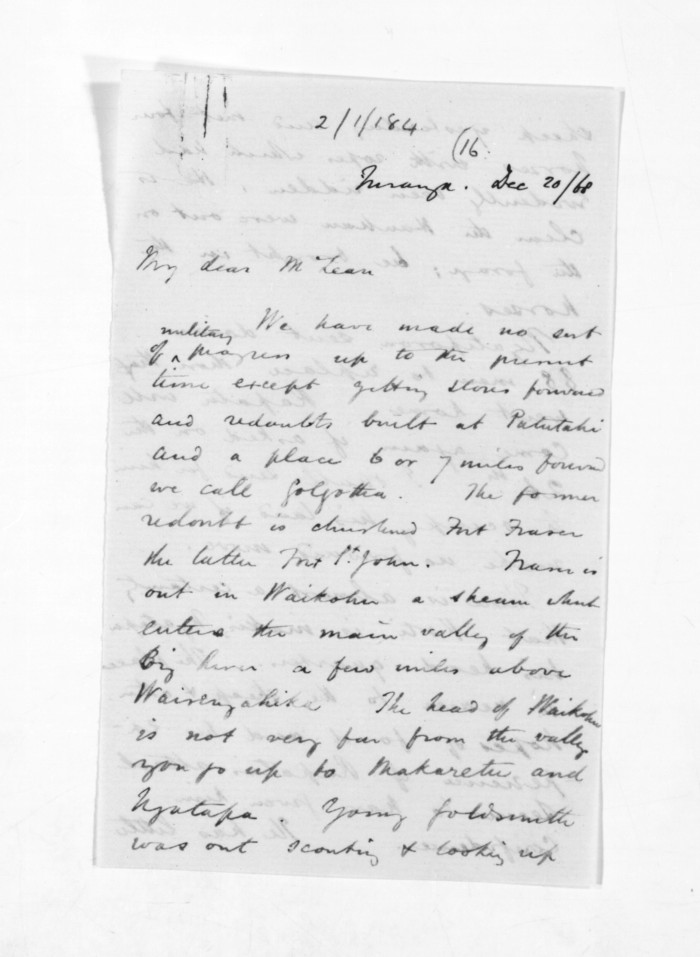 2/1/184
(16.
Turanga. Dec 20/68
My dear McLean
We have made no sort
of military progress up to the present
time except getting stores forward
and redoubts built at Patutahi
and a place 6 or 7 miles forward
we call Golgotha. The former
redoubt is christened Fort Fraser
the latter Fort St. John. Fraser is
out in Waikohu a stream which
enters the main valley of the
Big River a few miles above
Waerengahika The head of Waikohu
is not very far from the valley
you go up to Makaretu and
Ngatapa. Young Goldsmith
was out scouting & looking up